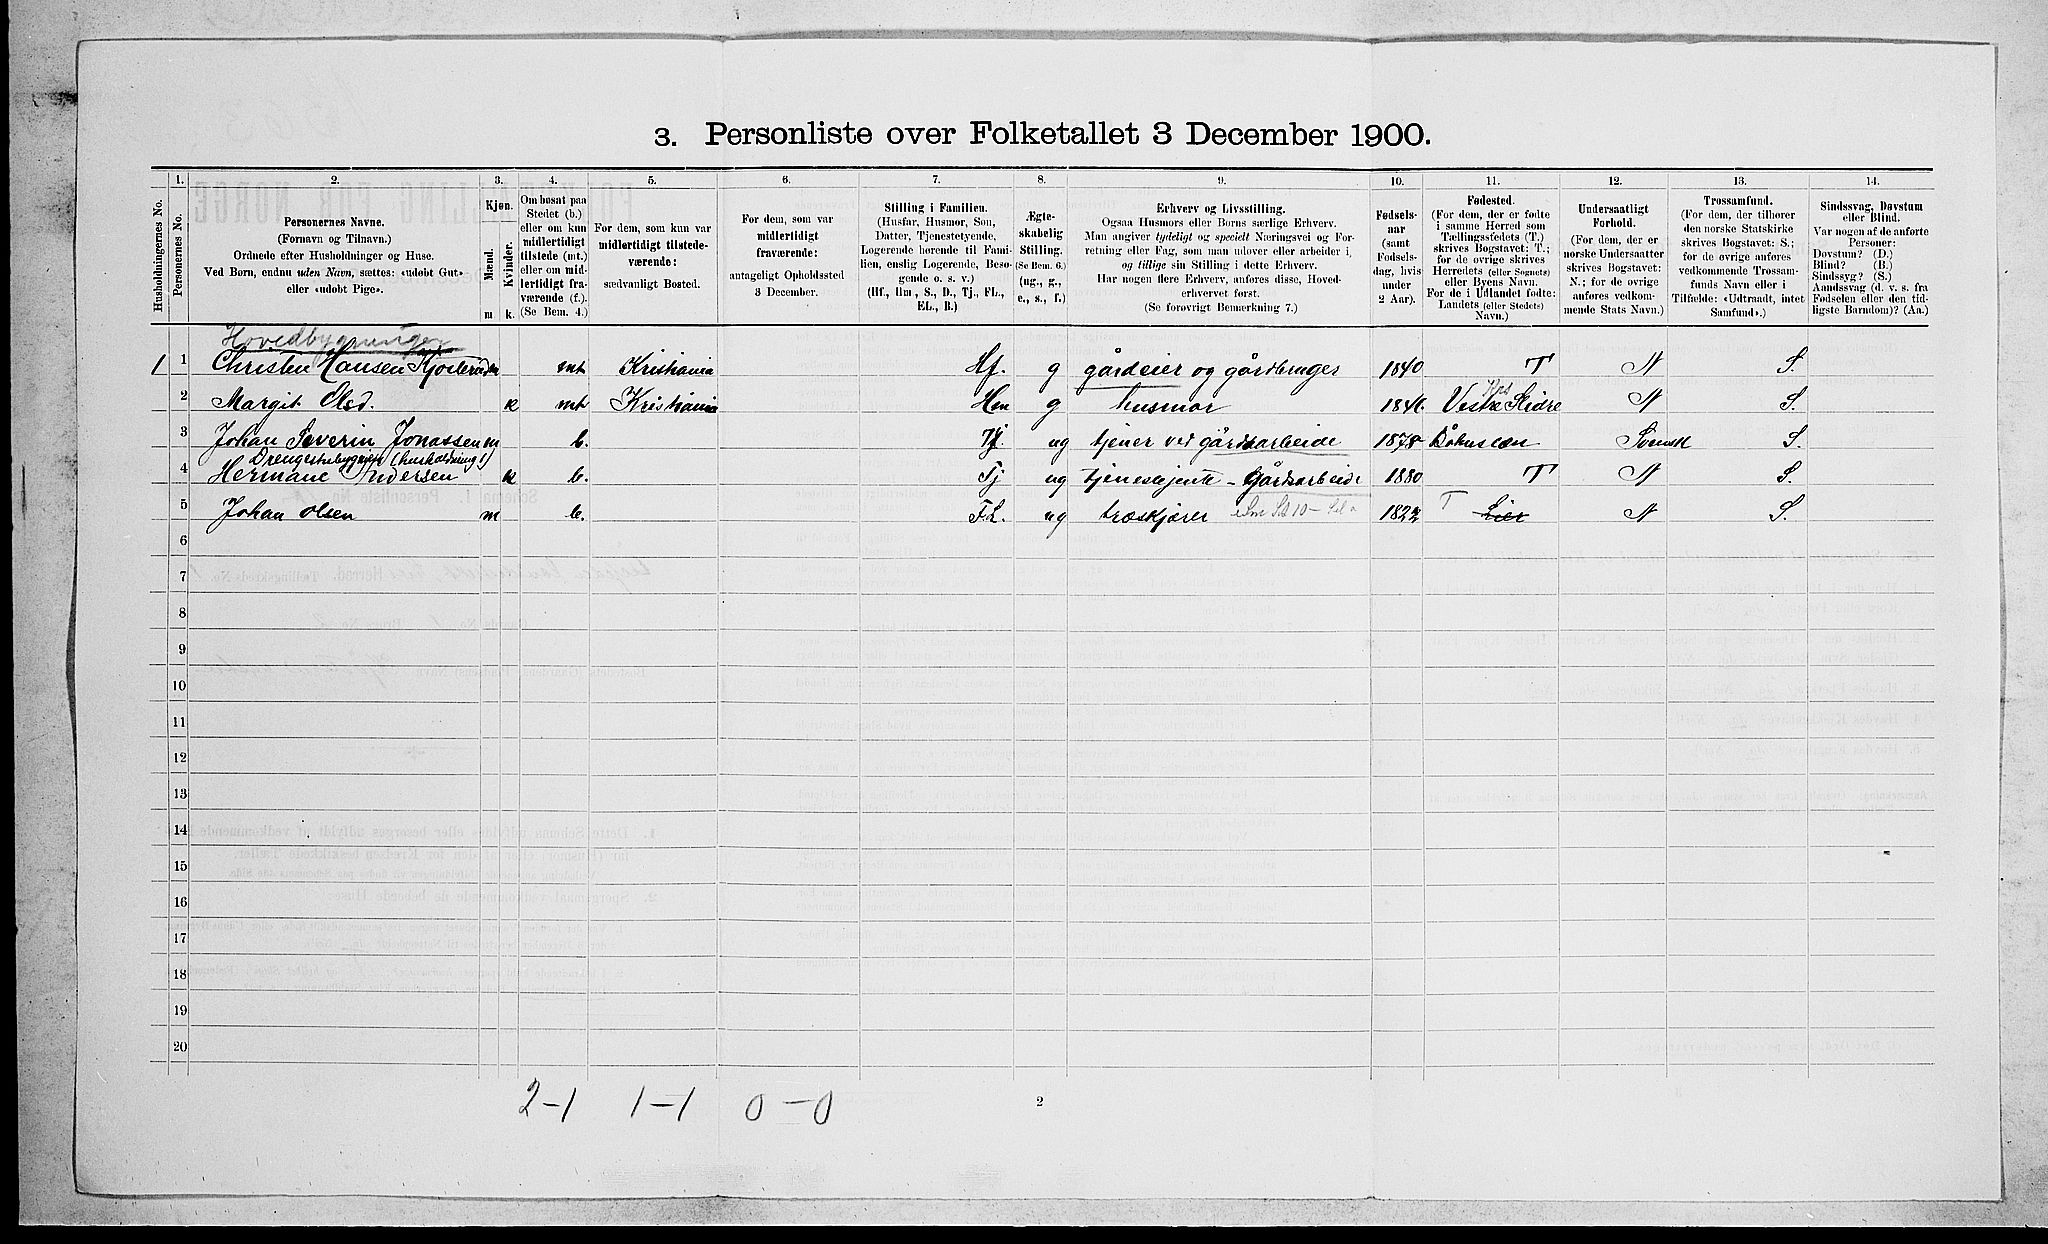 3. Personliste over Folketallet 3 December 1900.
Husholdningernes No.
1.
Personernes No.
2.
Personernes Navne.
(Fornavn og Tilnavn.)
Ordnede efter Husholdninger og Huse.
Ved Børn, endnu uden Navn, sættes: «udøbt Gut»
eller «udøbt Pige».
3.
Kjøn.
Mænd.
Kvinder.
m k.
4.
Om bosat paa
Stedet (b.)
eller om kun
midlertidigt
tilstede (mt.)
eller om mid-
lertidigt fra-
værende (f.).
(Se Bem. 4.)
5.
For dem, som kun var
midlertidigt tilstede-
værende:
sædvanligt Bosted.
6.
For dem, som var
midlertidigt
fraværende:
antageligt Opholdssted
3 December.
7.
Stilling i Familien.
(Husfar, Husmor, Søn,
Datter, Tjenestetyende,
Logerende hørende til Fami-
lien, enslig Logerende, Besø-
gende o. s. v.)
(Hf., Hm., S., D., Tj., FL.,
EL., B.)
8.
Ægte-
skabelig
Stilling.
(Se Bem. 6.)
(ug., g.,
e., s., f.)
9.
Erhverv og Livsstilling.
Ogsaa Husmors eller Børns særlige Erhverv.
Man angiver tydeligt og specielt Næringsvei og For-
retning eller Fag, som man udøver eller arbeider i,
og tillige sin Stilling i dette Erhverv.
Har nogen flere Erhverv, anføres disse, Hoved-
erhvervet først.
(Se forøvrigt Bemerkning 7.)
10.
Fødsels-
aar
(samt
Fødsels-
dag, hvis
under
2 Aar).
11.
Fødested.
(For dem, der er fødte
i samme Herred som
Tællingsstedets (T.)
skrives Bogstavet: T.;
for de øvrige skrives
Herredets (eller Sognets)
eller Byens Navn.
For de i Udlandet fødte:
Landets (eller Stedets)
Navn.)
12.
Undersaatligt
Forhold.
(For dem, der er
norske Undersaatter
skrives Bogstavet:
N.; for de øvrige
anføres vedkom-
mende Stats Navn.)
13.
Trossamfund.
(For dem, der tilhører
den norske Statskirke
skrives Bogstavet: S.;
for de øvrige anføres
vedkommende Trossam-
funds Navn eller i
Tilfælde: «Udtraadt, intet
Samfund».)
14.
Sindssvag, Døvstum
eller Blind.
Var nogen af de anførte
Personer:
Døvstum? (D.)
Blind? (B.)
Sindssyg? (S.)
Aandssvag (d. v. s. fra
Fødselen eller den tid-
ligste Barndom)? (Aa.)
Hovedbygninger
1 1 Christen Hansen m mt Kristiania Hf. g gårdeier og gårdbruger 1840 T N S.
2 Margit Olsd. k mt Kristiania Hm g husmor 1841. Vestre Slidre N S.
3 Johan Severin Jonassen m b. Tj. ug tjener ved gårdsarbeide 1878 Bohuslæn Svensk S.
Drengestubygnign (husholdning 1)
4 Hermane Andersen k b. Tj ug tjenestejente - Gårdsarbeide 1880 T N S.
5 Johan Olsen m b. F.L. ug træskjærer 1822 T Lier N S.
6
7
8
9
10
11
12
13
14
15
16
17
18
19
20
2-1 1-1 0-0
2